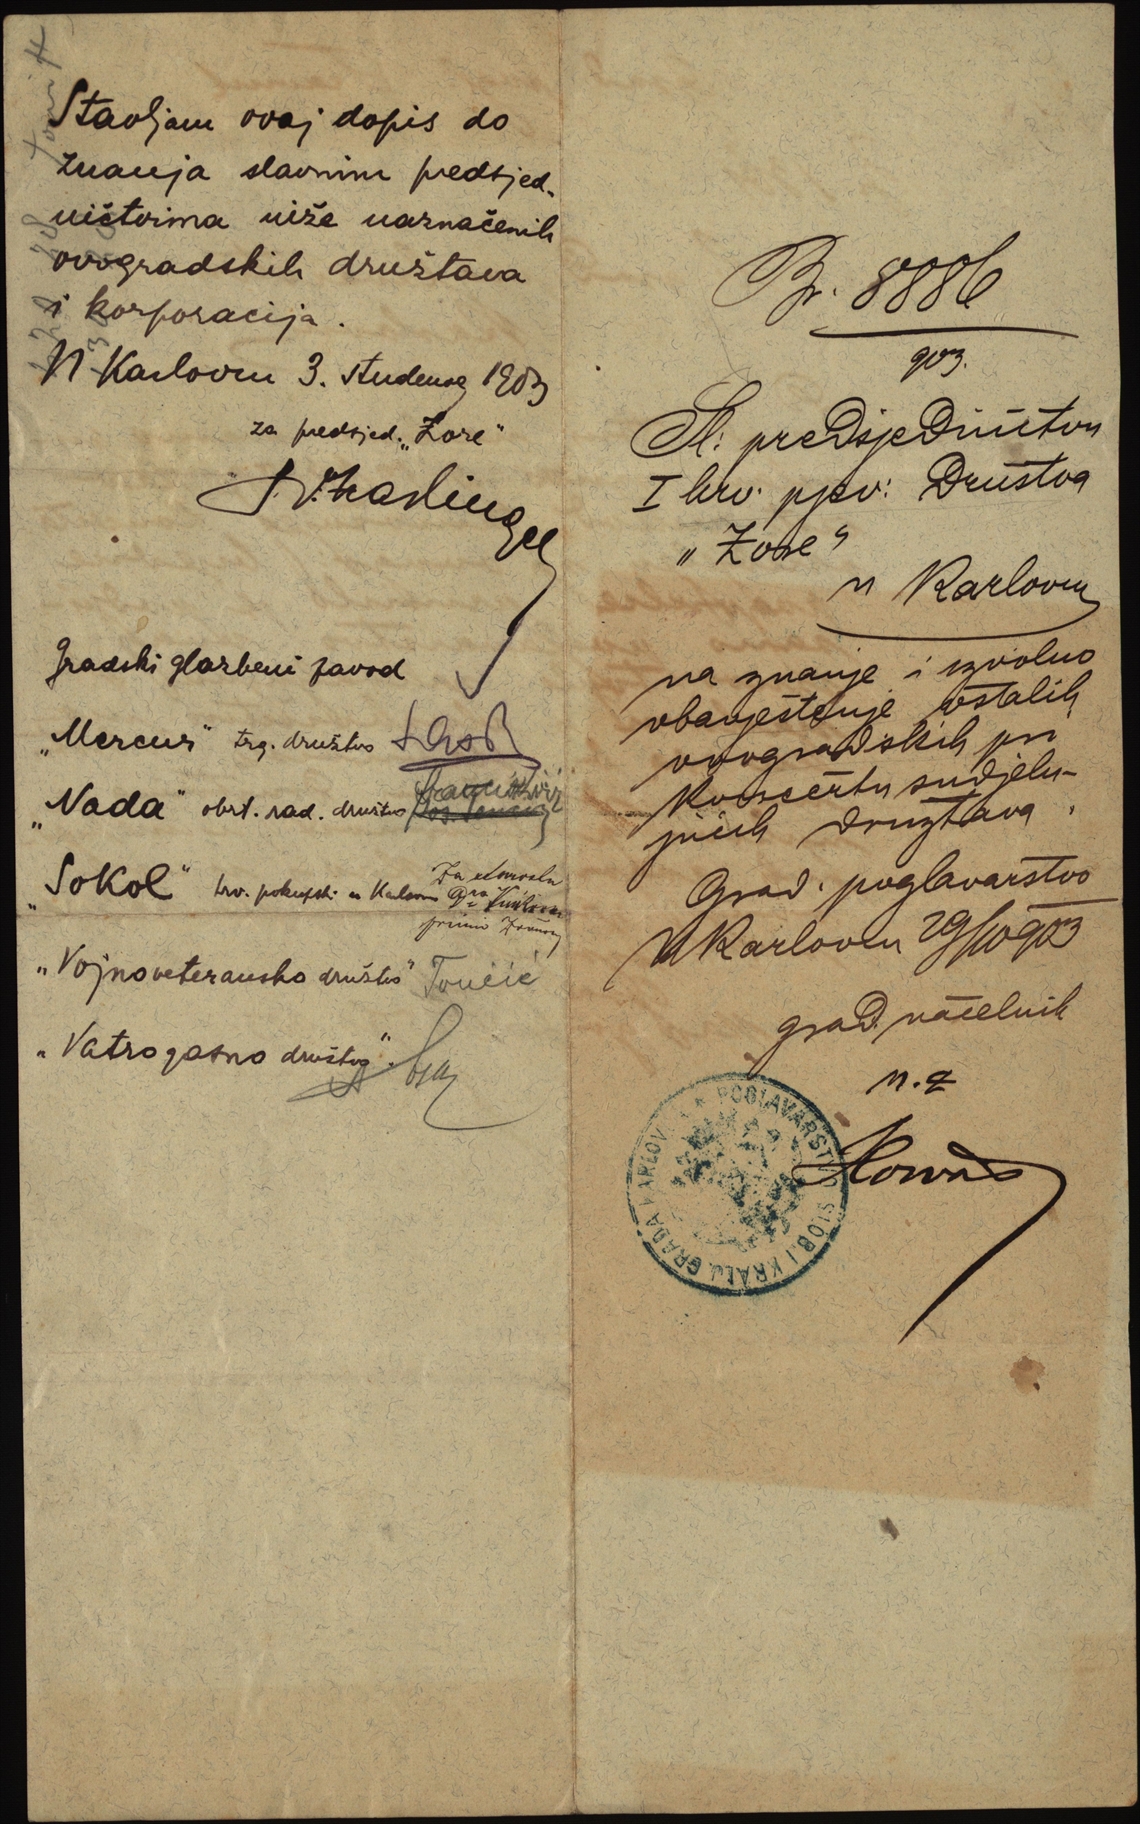 Stavljam ovaj dopis do
znanja slavnim predsjed-
ničtvima niže naznačenih
ovogradskih družtava
i korporacija.
U Karlovcu 3. studenog 1903
za predsjed. „Zore"
Gradski glazbeni zavod
„Mercur" trg. društvo
„Nada" obrt. rad. društvo
„Sokol" hrv. pokupski u Karlovcu
primio
„Vojnoveteransko družtvo" Tončić
„Vatrogasno društvo".
Br. 8886
903.
Sl. predsjedničtvu
I hrv. pjev: Društva
„Zore"
u Karlovcu
na znanje i izvolno
obavještenje ostalih
ovogradskih pri
koncertu sudjelu-
jućih družtava.
Grad. poglavarstvo
U Karlovcu 29/10 903
grad. načelnik
POGLAVARSTVO SLOB. I KRALJ. GRADA KARLOVCA